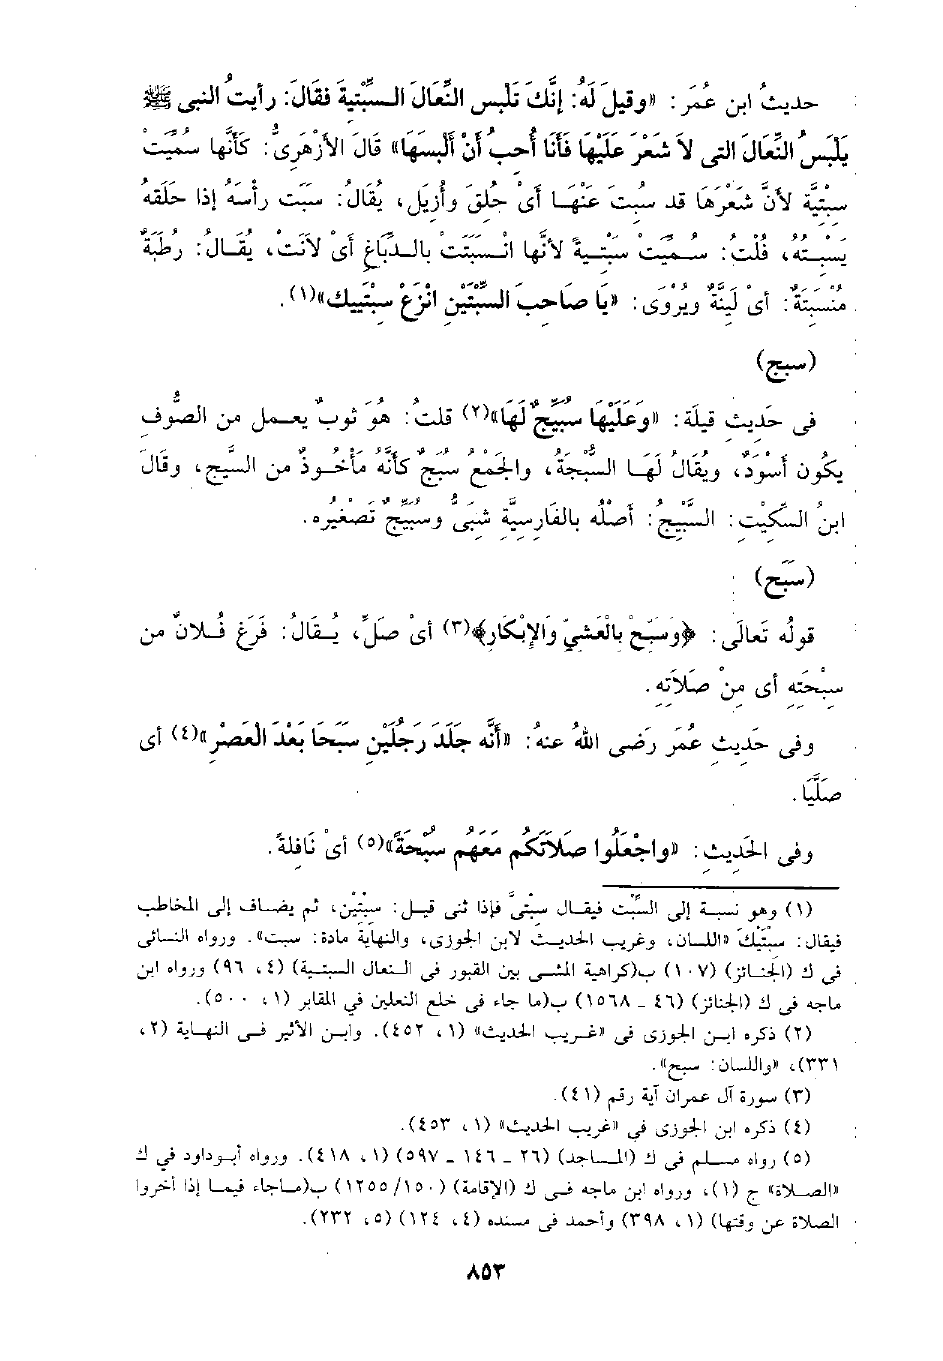 حديثُ ابن عُمَر: «وقيلَ لَهُ: إنَّكَ تَلْبس النِّعالَ السبِّتِيةَ فقَالَ: رأيتُ النبى ﷺ
يَلْبَسُ النِّعالَ التى لاَ شعْرَ عَلَيْهَا فَأنَا أُحبُ أنْ ألْبسهَا» قَالَ الأزْهَرىُّ: كأنَّها سمُيَتْ
سبْتِيَّة لأنَّ شَعْرَهَا قد سبُتَ عنْهَا أىْ حلُقَ وأُزيلَ، يُقالُ: سبَتَ رأسَهُ إذا حلَقهُ
يَسْبتُه، قُلْتُ: سُميَتْ سبْتيةً لأنَّها انْسبَتَتْ بالدِّبَاغِ أىْ لاَنَتْ، يُقَالُ: رُطَبَةٌ
مُنْسَبَتَةٌ: أىْ لَينَّةٌ ويُرْوَى: «يَا صَاحبَ السِّبْتَيْنِ انْزَعْ سبْتَييك»(١).
(سبج)
فى حَديث قيلَة: «وَعَلَيْهَا سُبَيِّجٌ لَهَا»(٢) قلتُ: هُوَ ثوبٌ يعمل من الصُّوف
يكُون أسْوَدُ، ويقَالُ لَهَا السُّبْجَةُ، والجَمْعُ سُبَجٌ كأنَّهُ مَأخُوذٌ من السَّيج، وقَالَ
ابنُ السكِّيْتِ: السَّبْيجُ: أصْلُه بالفَارِسِيَّة شَبىُّ وسُبَيِّجٌ تَصغيُره.
(سَبَح)
قولُه تَعالَى: ﴿وَسَبَحْ بِالْعَشىِ وَالإبْكَار﴾(٣) أىْ صَلِّ، يُقالُ: فَرَغَ فُلانٌ من
سبْحَتِهِ أى مِنْ صَلاَتِهِ.
وفى حَديثِ عُمَر رَضى اللهُ عنهُ: «أنَّه جَلَدَ رَجُلَيْنِ سَبَحَا بَعْدَ العَصْرْ»(٤) أى
صلَّيَا.
وفى الحَديث: «واجْعَلُوا صَلاَتَكُم مَعَهُم سُبْحَةً»(٥) أىْ نَافِلةً.
(١) وهو نسبة إلى السِّبْت فيقال سبْتىَّ فإذا ثنى قيل: سبْتِيْن، ثم يضاف إلى المخاطب
فيقال: سبْتَيْكَ «اللسان، وغريب الحديث لابن الجوزى، والنهاية مادة: سبت». ورواه النسائى
فى ك (الجنائز) (١٠٧) ب(كراهية المشى بين القبور فى النعال السبتية) (٤، ٩٦) ورواه ابن
ماجه فى ك (الجنائز) (٤٦ - ١٥٦٨) ب(ما جاء فى خلع النعلين في المقابر (١، ٥٠٠).
(٢) ذكره ابن الجوزى فى «غريب الحديث» (١، ٤٥٢). وابن الأثير فى النهاية (٢،
٣٣١)، «واللسان: سبج».
(٣) سورة آل عمران آية رقم (٤١).
(٤) ذكره ابن الجوزى في «غريب الحديث» (١، ٤٥٣).
(٥) رواه مسلم فى ك (المساجد) (٢٦ - ١٤٦ - ٥٩٧) (١، ٤١٨). ورواه أبوداود في ك
«الصلاة» ج (١)، ورواه ابن ماجه فى ك (الإقامة) (١٥٠/ ١٢٥٥) ب(ماجاء فيما إذا أخروا
الصلاة عن وقتها) (١، ٣٩٨) وأحمد فى مسنده (٤، ١٢٤) (٥، ٢٣٢).
٨٥٣